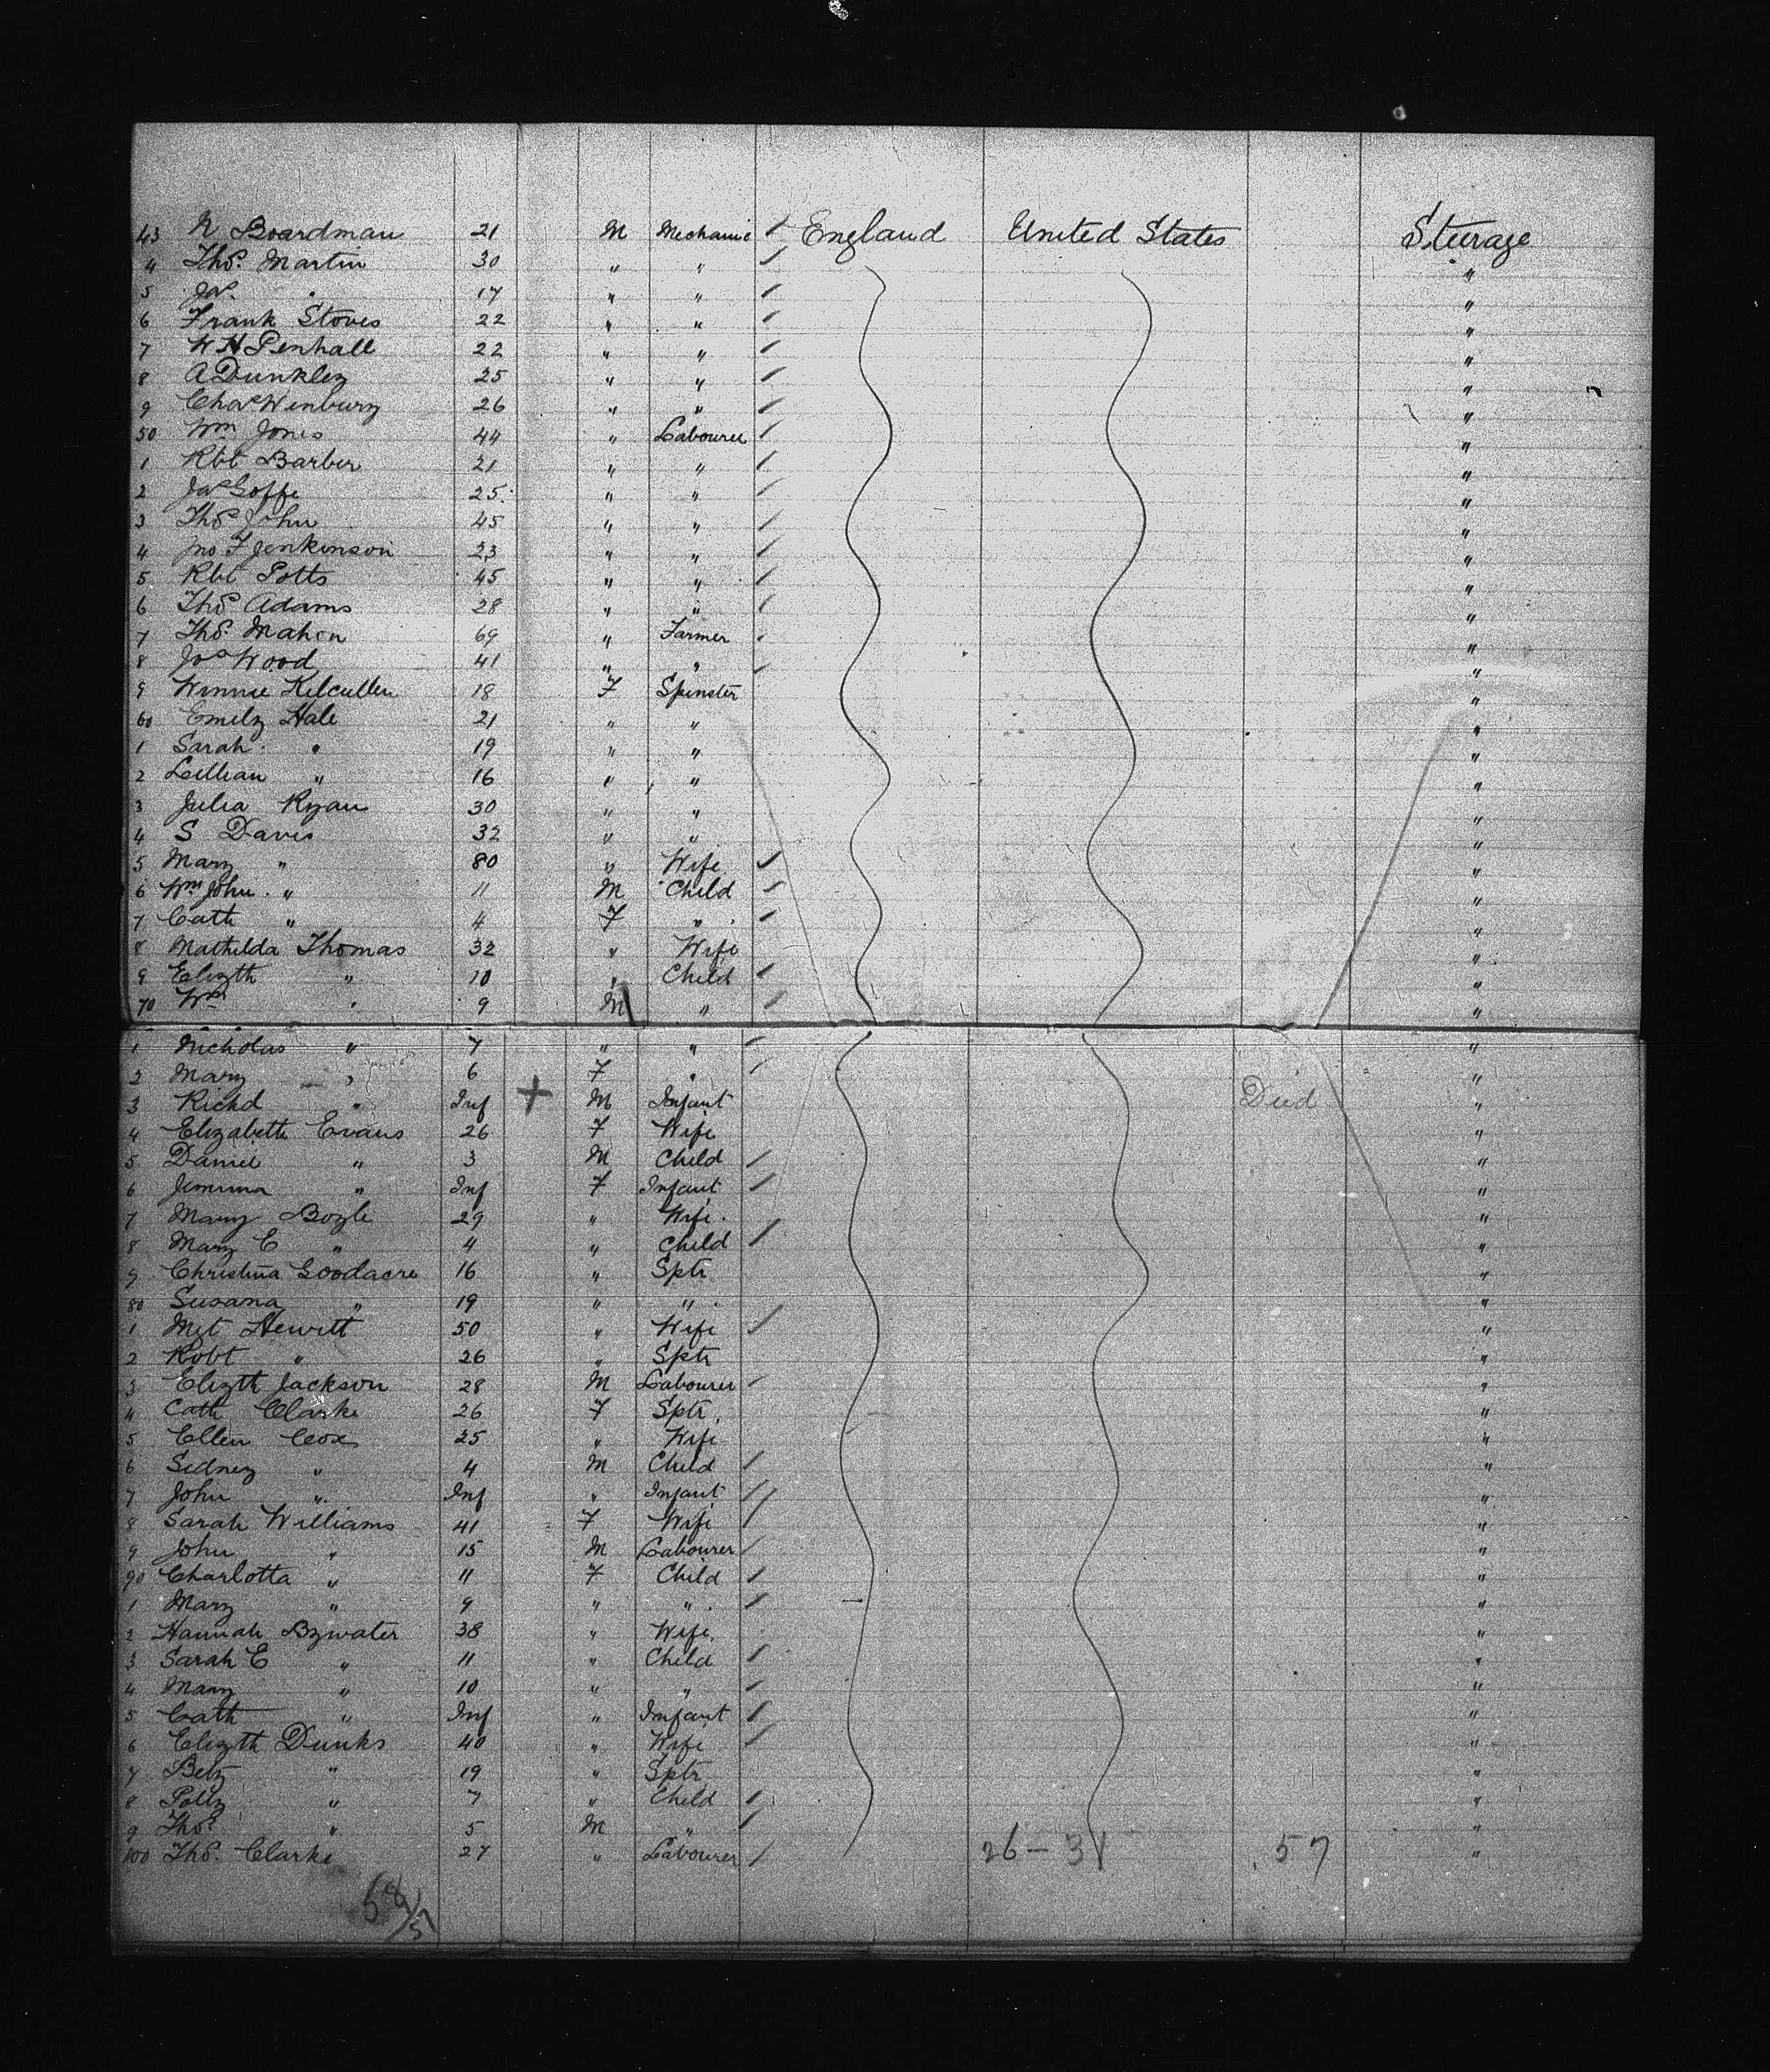 43 N Boardman 21 M Mechanic England United States Steerage
4 Thos. Martin 30 " " "
5 Jas. " 17 " " "
6 Frank Stoves 22 " " "
7 W H Penhall 22 " " "
8 A Dunkley 25 " " "
9 Chas Winbury 26 " " "
50 Wm Jones 44 " Labourer "
1 Rbt Barber 21 " " "
2 Jas Goffe 25 " " "
3 Thos John 45 " " "
4 Jno F Jenkinson 23 " " "
5 Rbt Potts 45 " " "
6 Thos Adams 28 " " "
7 Thos. Mahon 69 " Farmer "
8 Jos Wood 41 " " "
9 Winnie Kilcullen 18 F Spinster "
60 Emily Hale 21 " " "
1 Sarah " 19 " " "
2 Lillian " 16 " " "
3 Julia Ryan 30 " " "
4 S Davis 32 " " "
5 Mary " 80 " Wife "
6 Wm John " 11 M Child "
7 Cath " 4 F " "
8 Mathilda Thomas 32 " Wife "
9 Elizth " 10 " Child "
70 Wm " 9 M " "
1 Nicholas " 7 " " "
2 Mary " 6 F " "
3 Richd " Inf + M Infant Died "
4 Elizabeth Evans 26 F Wife "
5 Daniel " 3 M Child "
6 Jemima " Inf F Infant "
7 Mary Boyle 29 " Wife "
8 Mary E " 4 " Child "
9 Christina Goodacre 16 " Sptr "
80 Susana " 19 " " "
1 Mgt Hewitt 50 " Wife "
2 Robt " 26 " Sptr "
3 Elizth Jackson 28 M Labourer "
4 Cath Clarke 26 F Sptr "
5 Ellen Cox 25 " Wife "
6 Sidney " 4 M Child "
7 John " Inf " Infant "
8 Sarah Williams 41 F Wife "
9 John " 15 M Labourer "
90 Charlotta " 11 F Child "
1 Mary " 9 " " "
2 Hannah Bywater 38 " Wife "
3 Sarah E " 11 " Child "
4 Mary " 10 " " "
5 Cath " Inf " Infant "
6 Elizth Dunks 40 " Wife "
7 Bety " 19 " Sptr "
8 Polly " 7 " Child "
9 Thos. " 5 M " "
100 Thos. Clarke 27 " Labourer 26-31 57 "
58/57